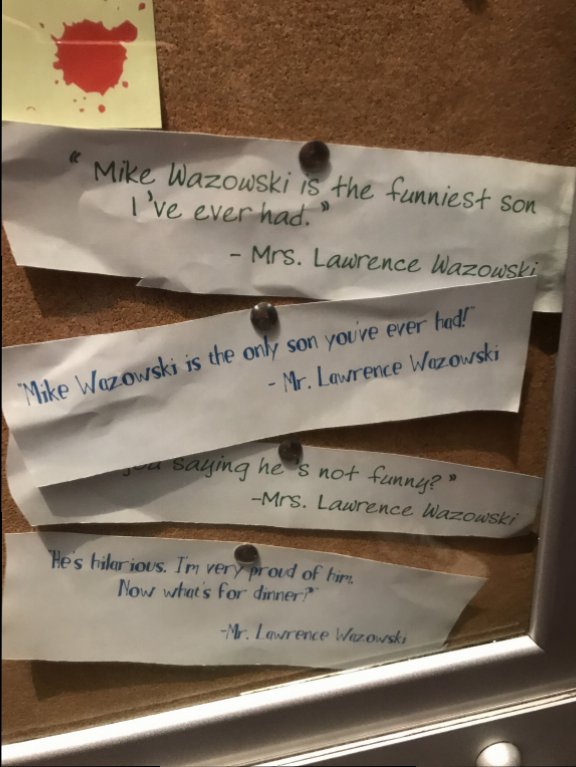 “ Mike Wazowski is the funniest son
I've ever had. ”
- Mrs. Lawrence Wazowski
"Mike Wazowski is the only son you've ever had!"
- Mr. Lawrence Wazowski
you saying he's not funny? ”
-Mrs. Lawrence Wazowski
"He's hilarious. I'm very proud of him.
Now what's for dinner?"
-Mr. Lawrence Wazowski